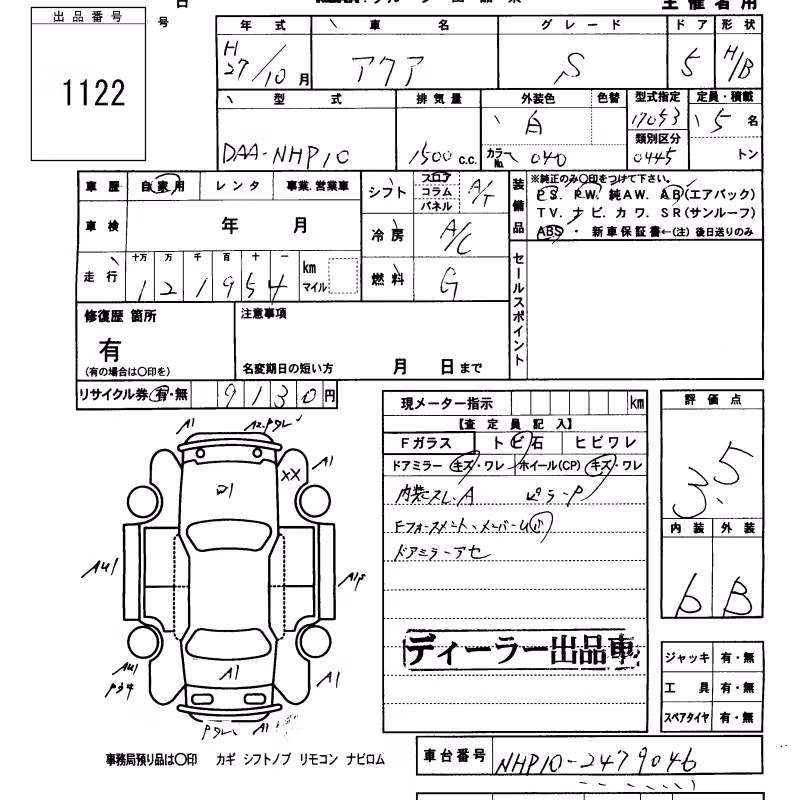 日
主催者用
出品番号
号
1122
年式 車名 グレード ドア 形状
H27/10月 アクア S 5 H/B
型式 排気量 外装色 色替 型式指定 定員・積載
DAA-NHP10 1500c.c. 白 17053 5名
カラーNo. 040 類別区分 0445 トン
車歴 自家用 レンタ 事業.営業車
シフト フロア コラム パネル A/T
車検 年 月
冷房 A/C
走行 十万 万 千 百 十 一
121954 km マイル
燃料 G
装備品
※純正のみ〇印をつけて下さい。
PS. PW. 純AW. AB(エアバック)
TV. ナビ. カワ. SR(サンルーフ)
ABS ・ 新車保証書←(注) 後日送りのみ
セールスポイント
修復歴 箇所
有
(有の場合は〇印を)
注意事項
名変期日の短い方 月 日まで
リサイクル券 有・無 9130円
現メーター指示 km
【査定員記入】
Fガラス トビ石 ヒビワレ
ドアミラー キズ・ワレ ホイール(CP) キズ・ワレ
内装スレ.A ピラーP
ドアミラーアセ
ディーラー出品車
評価点
3.5
内装 外装
b B
ジャッキ 有・無
工具 有・無
スペアタイヤ 有・無
A1
A1
XX
AU1
A1
AU1
A1
A1
事務局預り品は〇印 カギ シフトノブ リモコン ナビロム
車台番号 NHP10-2479046